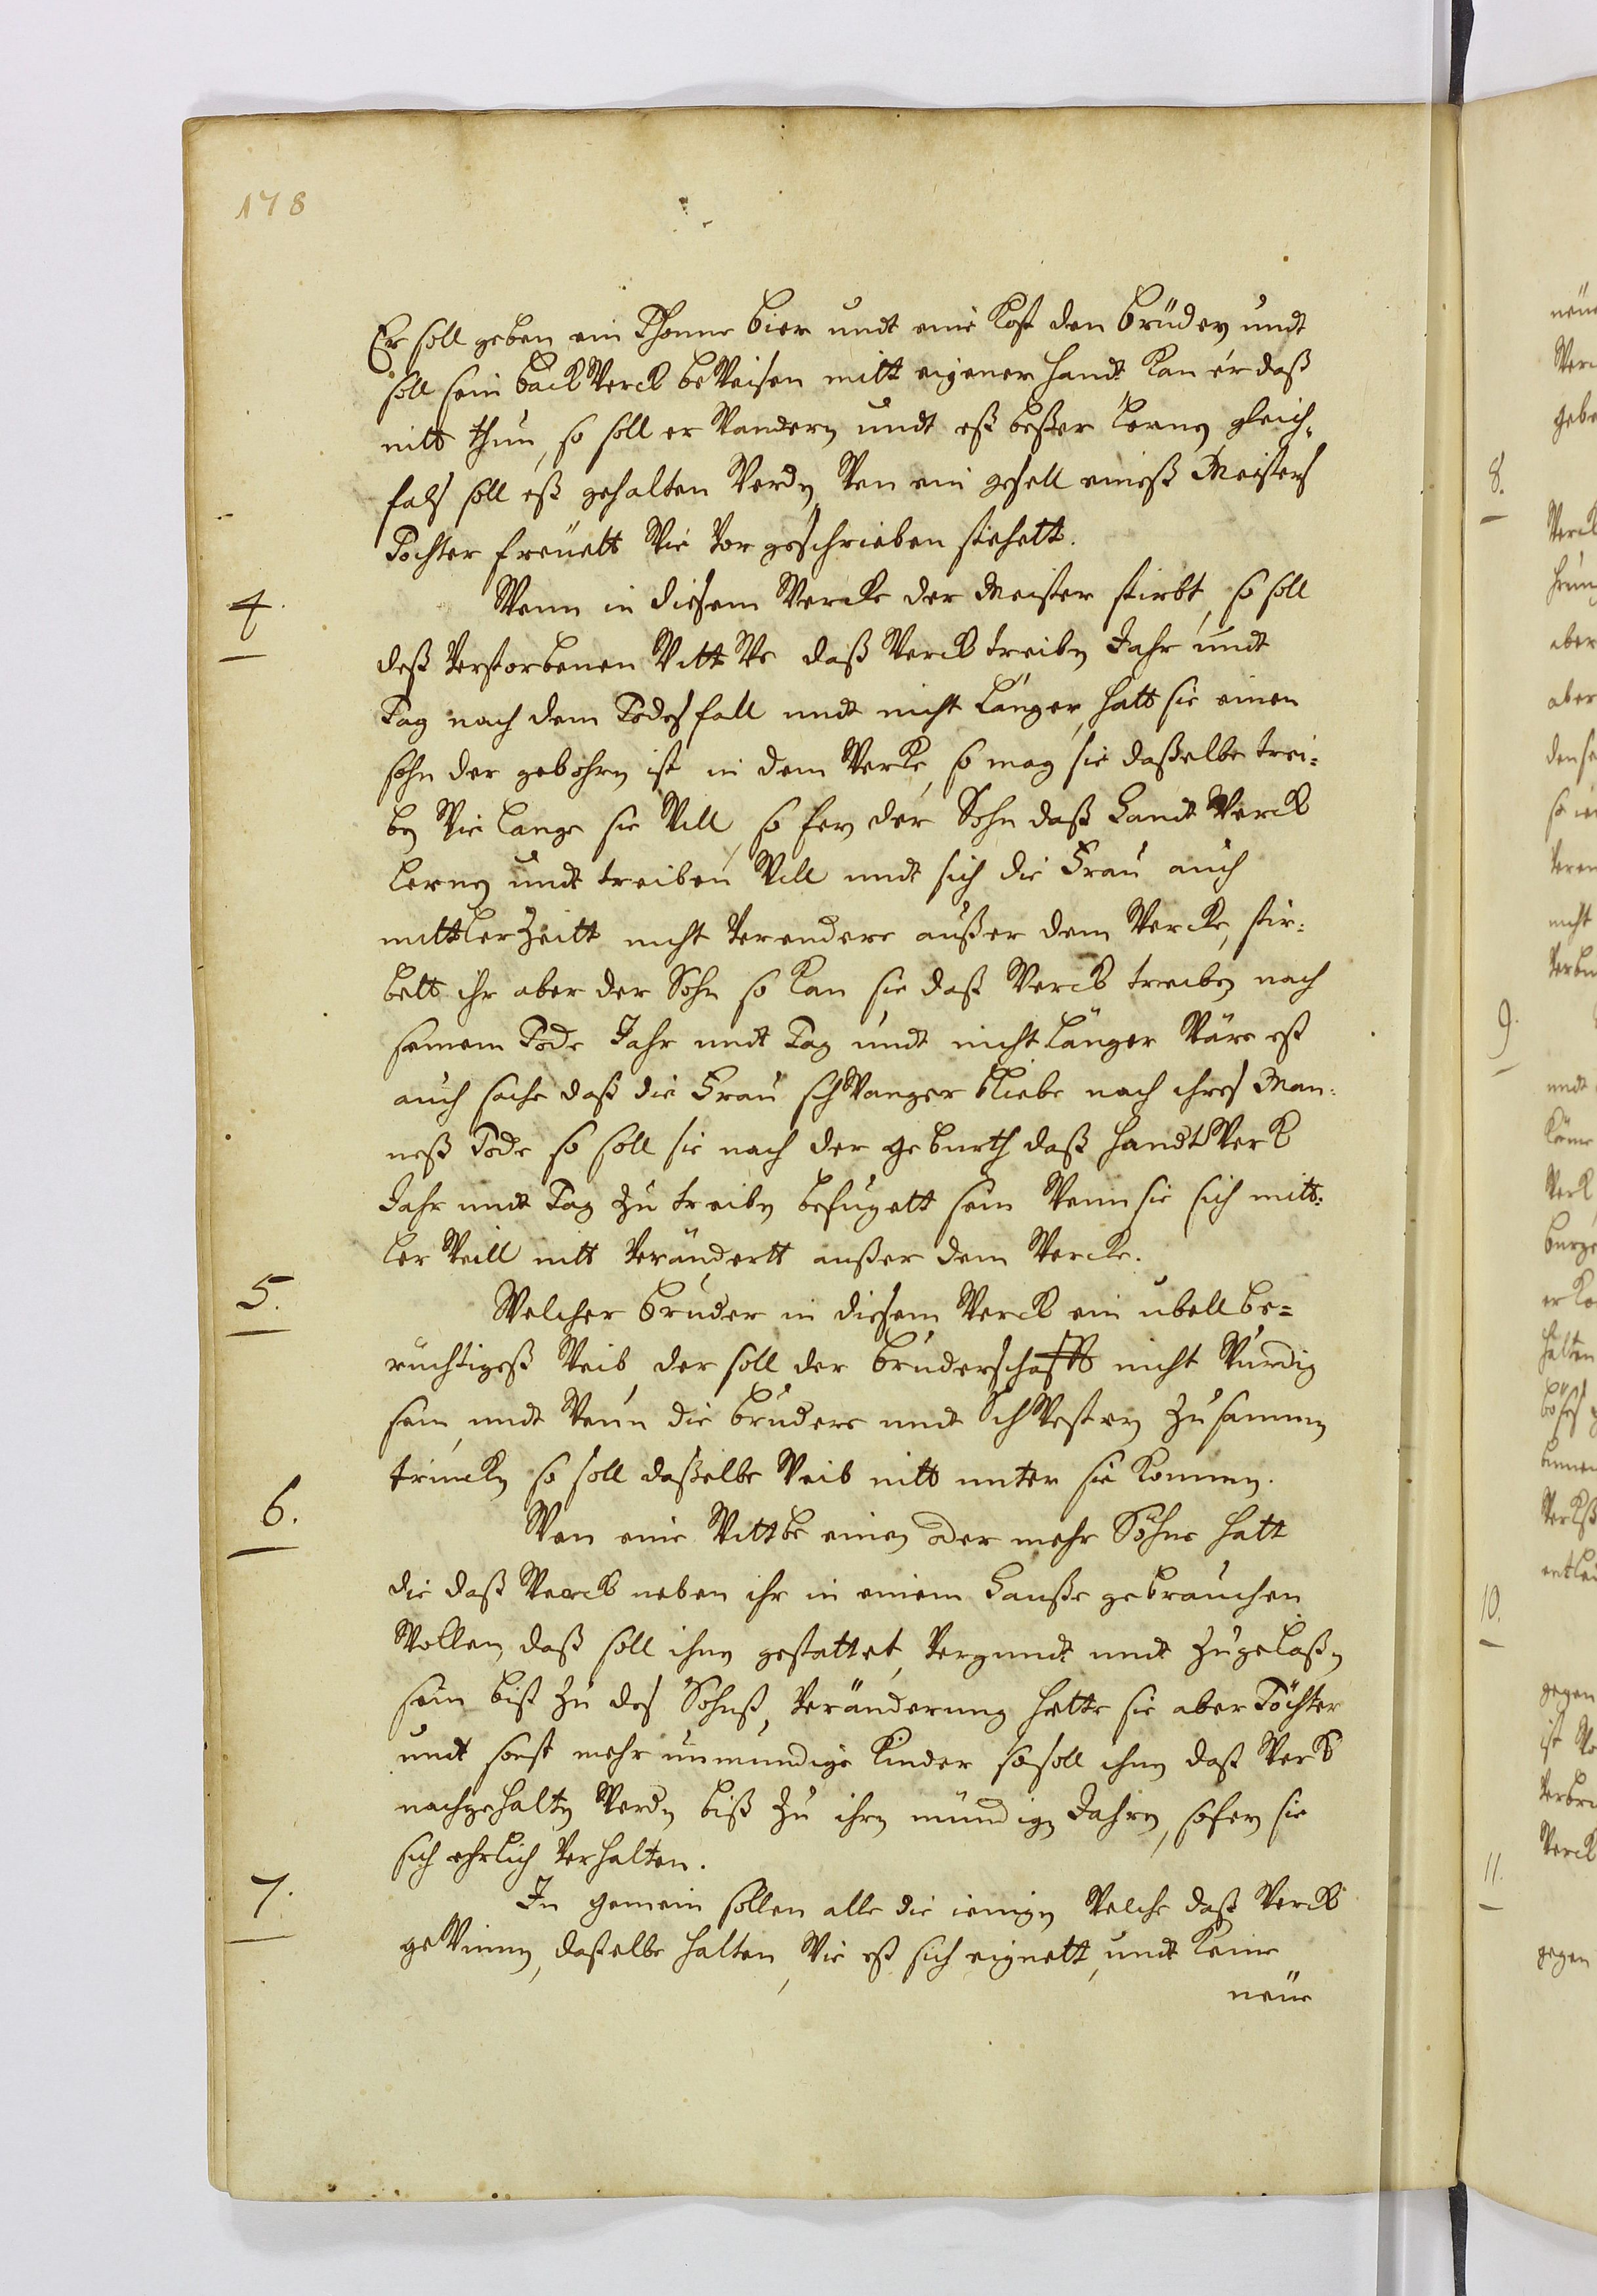 178
Er soll geben ein Thonne bier undt eine Kost den brüdern undt
soll sein back Werck beWeisen mitt eigener handt Kan er daß
nitt thun, so soll er Wandern undt eß beßer lernen, gleich-
fals soll eß gehalten Werden Wen ein gesell eineß Meisters
Tochter freuett Wie Vor geschrieben stehett.
4.
Wenn in diesem Wercke der Meister stirbt, so soll
deß Verstorbenen WittWe daß Werck treiben Jahr undt
Tag nach dem Todesfall undt nicht länger, hatt sie einen
sohn der gebohren ist in dem Werke, so mag sie daßelbe trei-
ben Wie lange sie Will, so fern der Sohn daß HandtWerck
lernen undt treiben Will undt sich die Frau auch
mittlerZeitt nicht Verendere außer dem Wercke, stir-
bett ihr aber der Sohn so kan sie daß Werck treiben nach
seinem Tode Jahr undt Tag undt nicht länger Wäre eß
auch sache daß die Frau schWanger bliebe nach ihres Man-
neß Tode so soll sie nach der geburth daß handtWerk
Jahr undt Tag Zu treiben befugett sein Wenn sie sich mitt-
ler Weill nitt Verändertt außer dem Wercke.
5.
Welcher bruder in diesem Werck ein ubell be-
rüchtigeß Weib, der soll der bruderschafft nicht Würdig
sein, undt Wenn die brudere undt SchWestern Zusammen
trincken so soll daßelbe Weib nitt unter sie kommen.
6.
Wan eine Wittbe einen oder mehr Söhne hatt
die daß Werck neben ihr in einem Hauße gebrauchen
Wollen, daß soll ihnen gestattet, Vergundt undt Zugelaßen
sein biß Zu des Sohnß, Veränderung hette sie aber Töchter
undt sonst mehr unmundige kinder so soll ihnen daß Werck
nachgehalten Werden biß Zu ihren mündigen Jahren, sofern sie
sich ehrlich Verhalten.
7.
In gemein sollen alle die ienigen Welche daß Werck
geWinnen, daßelbe halten, Wie eß sich eignett, undt keine
neue
8.
9.
10.
11.
gegen